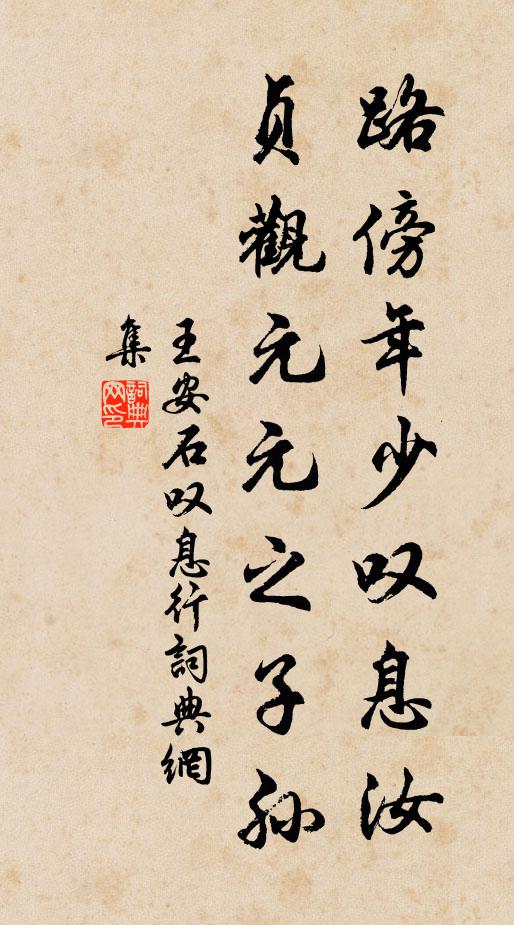 路傍年少叹息汝
贞觀元元之子孙
王安石叹息行詞典網
集
詞典網印